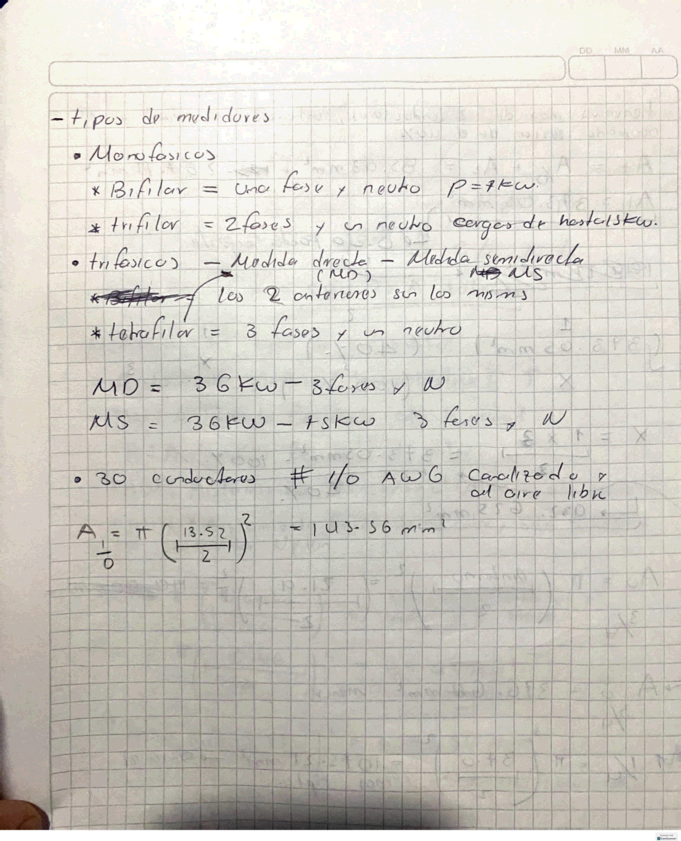 DD MM AA
- tipos de medidores
• Monofasicos
* Bifilar = una fase y neutro P = 7kw.
* trifilar = 2 fases y un neutro cargas de hasta 15kw.
• trifasicos - Medida directa - Medida semidirecta
(MD) MS
los 2 anteriores son los mismos
* tetrafilar = 3 fases y un neutro
MD = 36kw - 3 fases y N
MS = 36kw - 75kw 3 fases y N
• 30 conductores # 1/0 AWG Canalizado y
al aire libre
A 1/0 = π (13.52/2)² = 143.56 mm²